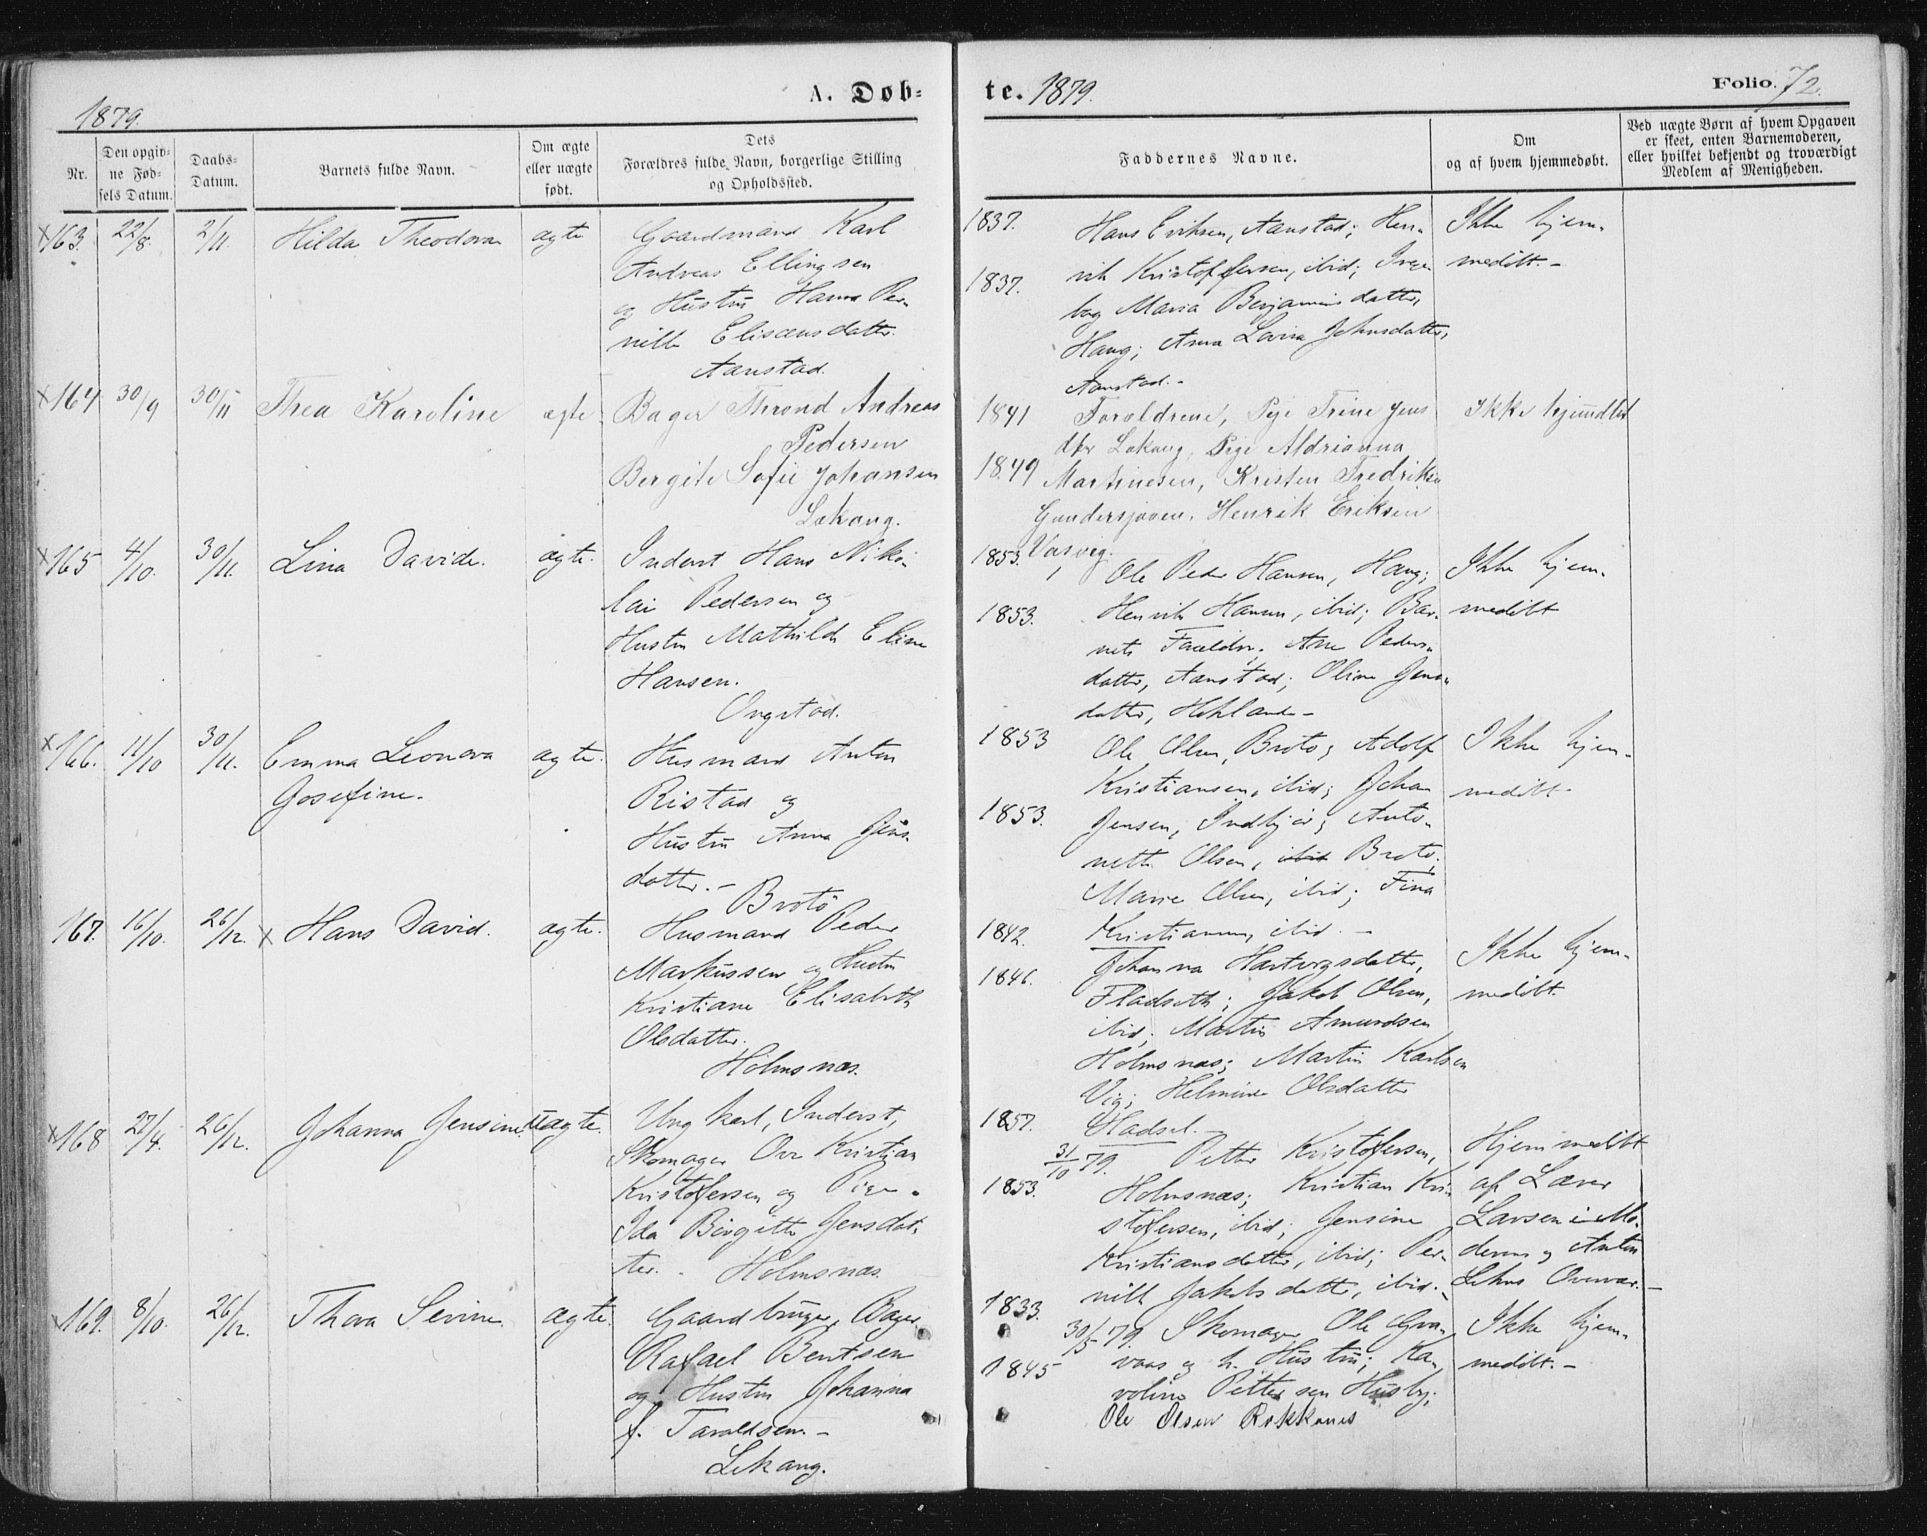 1879.
A. Døb-
te. 1879.
Folio. 72.
Nr.
Den opgiv-
ne Fød-
sels Datum.
Daabs-
Datum.
Barnets fulde Navn.
Om ægte
eller uægte
født.
Dets
Forældres fulde Navn, borgerlige Stilling
og Opholdssted.
Faddernes Navne.
Om
og af hvem hjemmedøbt.
Ved uægte Børn af hvem Opgaven
er skeet, enten Barnemoderen,
eller hvilket bekjendt og troværdigt
Medlem af Menigheden.
163. 22/8. 2/11. Hilda Theodora ægte
Gaardmand Karl
Andreas Ellingsen
og Hustru Hanna Per-
nille Elisæusdatter.
Aanstad.
1837.
1837.
Hans Eriksen, Aanstad; Hen-
rik Kristoffersen, ibid; Inge-
borg Maria Benjaminsdatter,
Haug; Anna Lovisa Johnsdatter,
Aanstad.-
Ikke hjem-
medøbt.-
164 30/9 30/11 Thea Karoline ægte
Bager Thrond Andreas
Pedersen
Bergite Sofie Johansen
Lekang.
1841
1849
Foroldrene, Pige Trine Jens
dtr Lekang, Pige Aldrianna
Martinesen, Kristen Fredriksen
Gundersjoven, Henrik Eriksen
Vasveg.
Ikke hjemdbt
165 4/10. 30/11. Lina Davida. ægte.
Inderst Hans Niko-
lai Pedersen og
Hustru Mathilde Eline
Hansen.
Ongstad.
1853.
1853.
Ole Peder Hansen, Haug;
Henrik Hansen, ibid; Bar-
nets Forældre; Ane Peders-
datter, Aanstad; Oline Jens-
datter, Hekland.-
Ikke hjem-
medøbt
166. 11/10 30/11. Emma Leonora
Josefine.
ægte.
Husmand Anton
Ristad og
Hustru Anna Jens-
datter.-
Brotø
1853
1853.
Ole Olsen, Brotø; Adolf
Kristiansen, ibid; Johan
Jensen, Indbjør; Anto-
nette Olsen, ibid Brotø;
Marie Olsen, ibid; Fina
Kristiansen, ibid.-
Ikke hjem-
medøbt.
167. 16/10. 26/12. x Hans David. ægte.
Husmand Peder
Markussen og Hustru
Kristiane Elisabeth
Olsdatter.
Holmsnæs.
1842.
1846.
Johanna Hartvigsdatter,
Fladseth; Jakob Olsen,
ibid; Martin Amundsen
Holmsnæs; Martin Karlsen
Vig; Helmine Olsdatter
Hadsel.-
Ikke hjem-
medøbt.
168 27/4. 26/12. Johanna Jensine. uægte.
Ungkarl, Inderst,
Skomager Ove Kristian
Kristofersen og Pige
Ida Birgitte Jensdat-
ter. Holmsnæs.
1857.
31/10 79.
1853.
Petter Kristofersen,
Holmsnæs; Kristian Kri-
stofersen, ibid; Jensine
Kristiansdatter, ibid; Per-
nille Jakobsdatter, ibid.-
Hjemmedøbt
af Lærer
Larsen i Mo-
derens og Anton
Lekns Overvær.-
169. 8/10. 26/12. Thora Sevrine. ægte.
Gaardbruger, Bager
Rafael Bentsen
og Hustru Johanna
f. Taraldsen.-
Lekang.
1833.
30/5 79.
1845
Skomager Ole Gra-
vaas og h. Hustru; Ka-
roline Pettersen Husby;
Ole Olsen Røkkenes
Ikke hjem-
medøbt.-